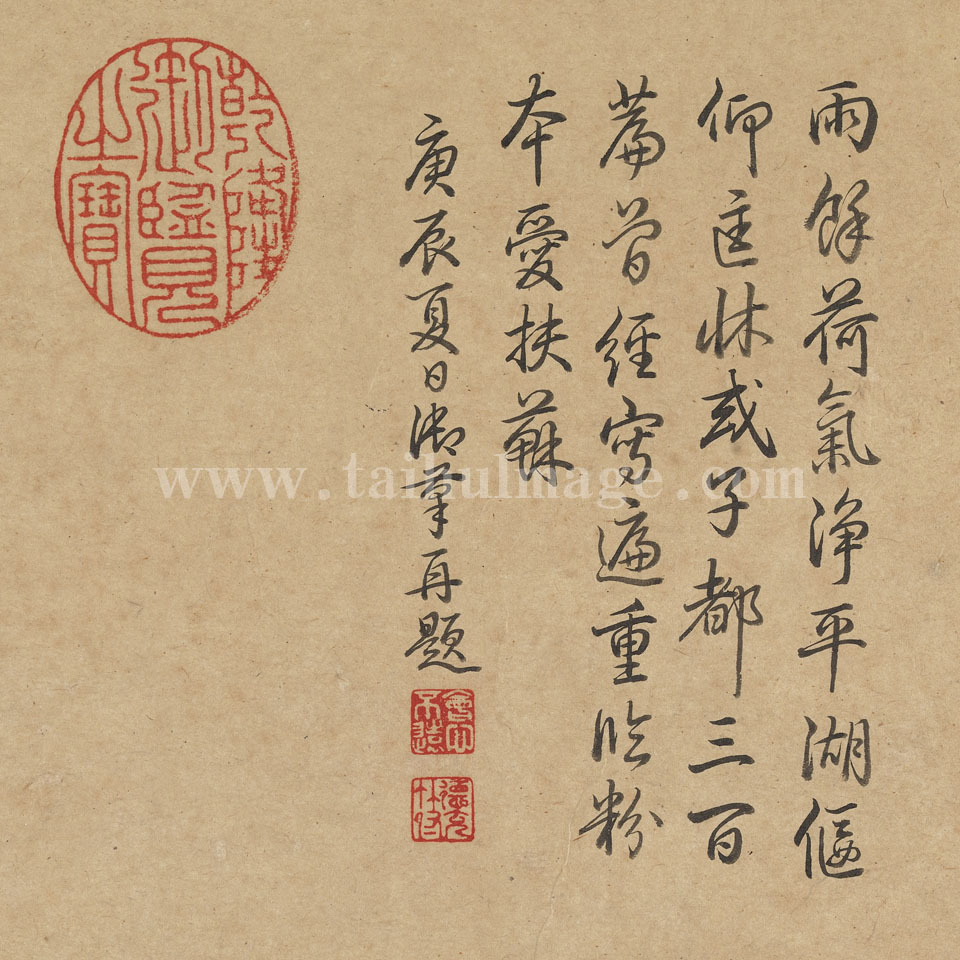 雨餘荷氣淨平湖偃
仰匡牀或子都三百
篇曾經寫遍重臨粉
本愛扶蘇
庚辰夏日御筆再題
會心不遠
德充符
乾隆御覽之寶
www.taihuImage.com